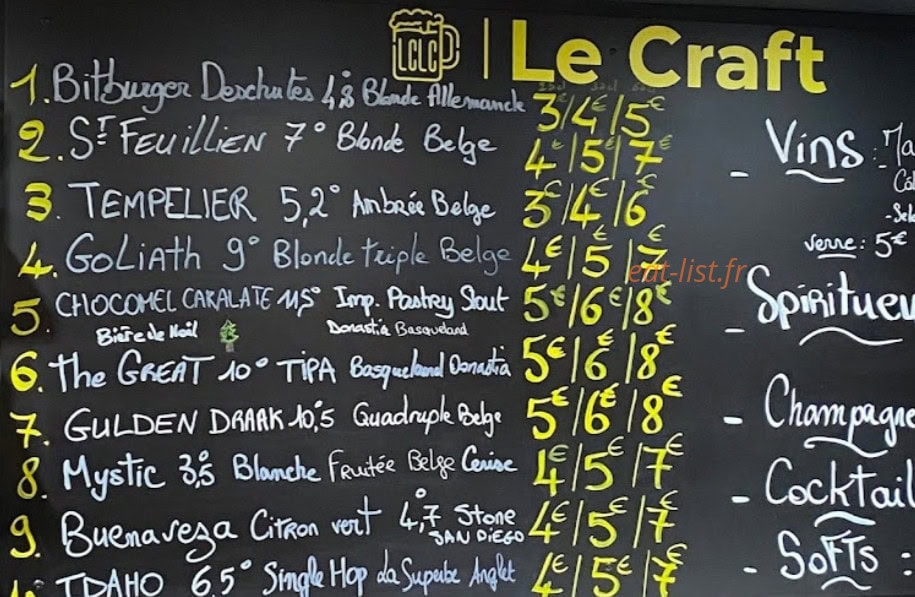 LCLC | Le Craft
1. Bitburger Deschutes 4,8° Blonde Allemande 3€/4€/5€
2. ST FEUILLIEN 7° Blonde Belge 4€/5€/7€
3. TEMPELIER 5,2° Ambrée Belge 3€/4€/6€
4. GOLIATH 9° Blonde triple Belge 4€/5/7€
5. CHOCOMEL CARALATE 11,5° Imp. Pastry Stout 5€/6€/8€
Bière de Noël Donastia Basqueland
6. The GREAT 10° TIPA Basqueland Donastia 5€/6€/8€
7. GULDEN DRAAK 10°,5 Quadruple Belge 5€/6€/8€
8. Mystic 3°,5 Blanche Fruitée Belge Cerise 4€/5€/7€
9. Buenaveza Citron vert 4°,7 Stone 4€/5€/7€
SAN DIEGO
IDAHO 6,5° Single Hop da Superbe Anglet 4€/5€/7€
- Vins :
verre : 5€
- Spiritueu
- Champagne
- Cocktail
- SoFTS :
eat-list.fr